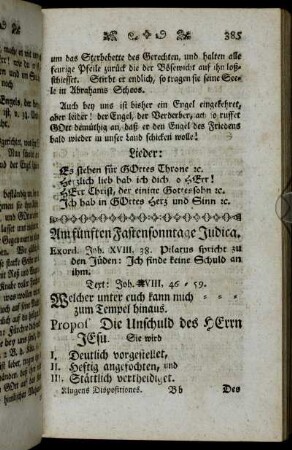 385
um das Sterbebette des Gerechten, und halten alle
feurige Pfeile zurück die der Bösewicht auf ihn loß-
schiesset. Stirbt er endlich, so tragen sie seine See-
le in Abrahams Schoos.
Auch bey uns ist bißher ein Engel eingekehret,
aber leider! der Engel, der Verderber, ach so ruffet
GOtt demüthig an, daß er den Engel des Friedens
bald wieder in unser Land schicken wolle!
Lieder:
Es stehen für GOttes Throne ꝛc.
Herzlich lieb hab ich dich o HErr!
HErr Christ, der einige Gottessohn ꝛc.
Ich hab in GOttes Herz und Sinn ꝛc.
Am fünften Fastensonntage Judica.
Exord. Joh. XVIII. 38. Pilatus spricht zu
den Jüden: Ich finde keine Schuld an
ihm.
Text: Joh. VIII. 46 - 59.
Welcher unter euch kann mich - - -
zum Tempel hinaus.
Propos. Die Unschuld des HErrn
JEsu. Sie wird
I. Deutlich vorgestellet,
II. Heftig angefochten, und
III. Stättlich vertheidiget.
Klugens Dispositiones. B b Des